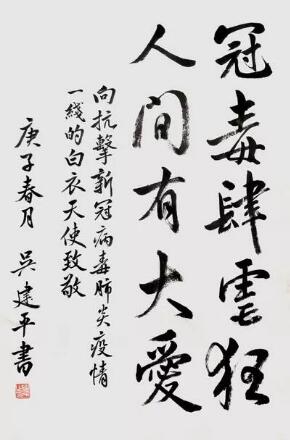 冠毒肆雲狂
人間有大愛
向抗擊新冠病毒肺炎疫情
一綫的白衣天使致敬
庚子春月 吴建平書